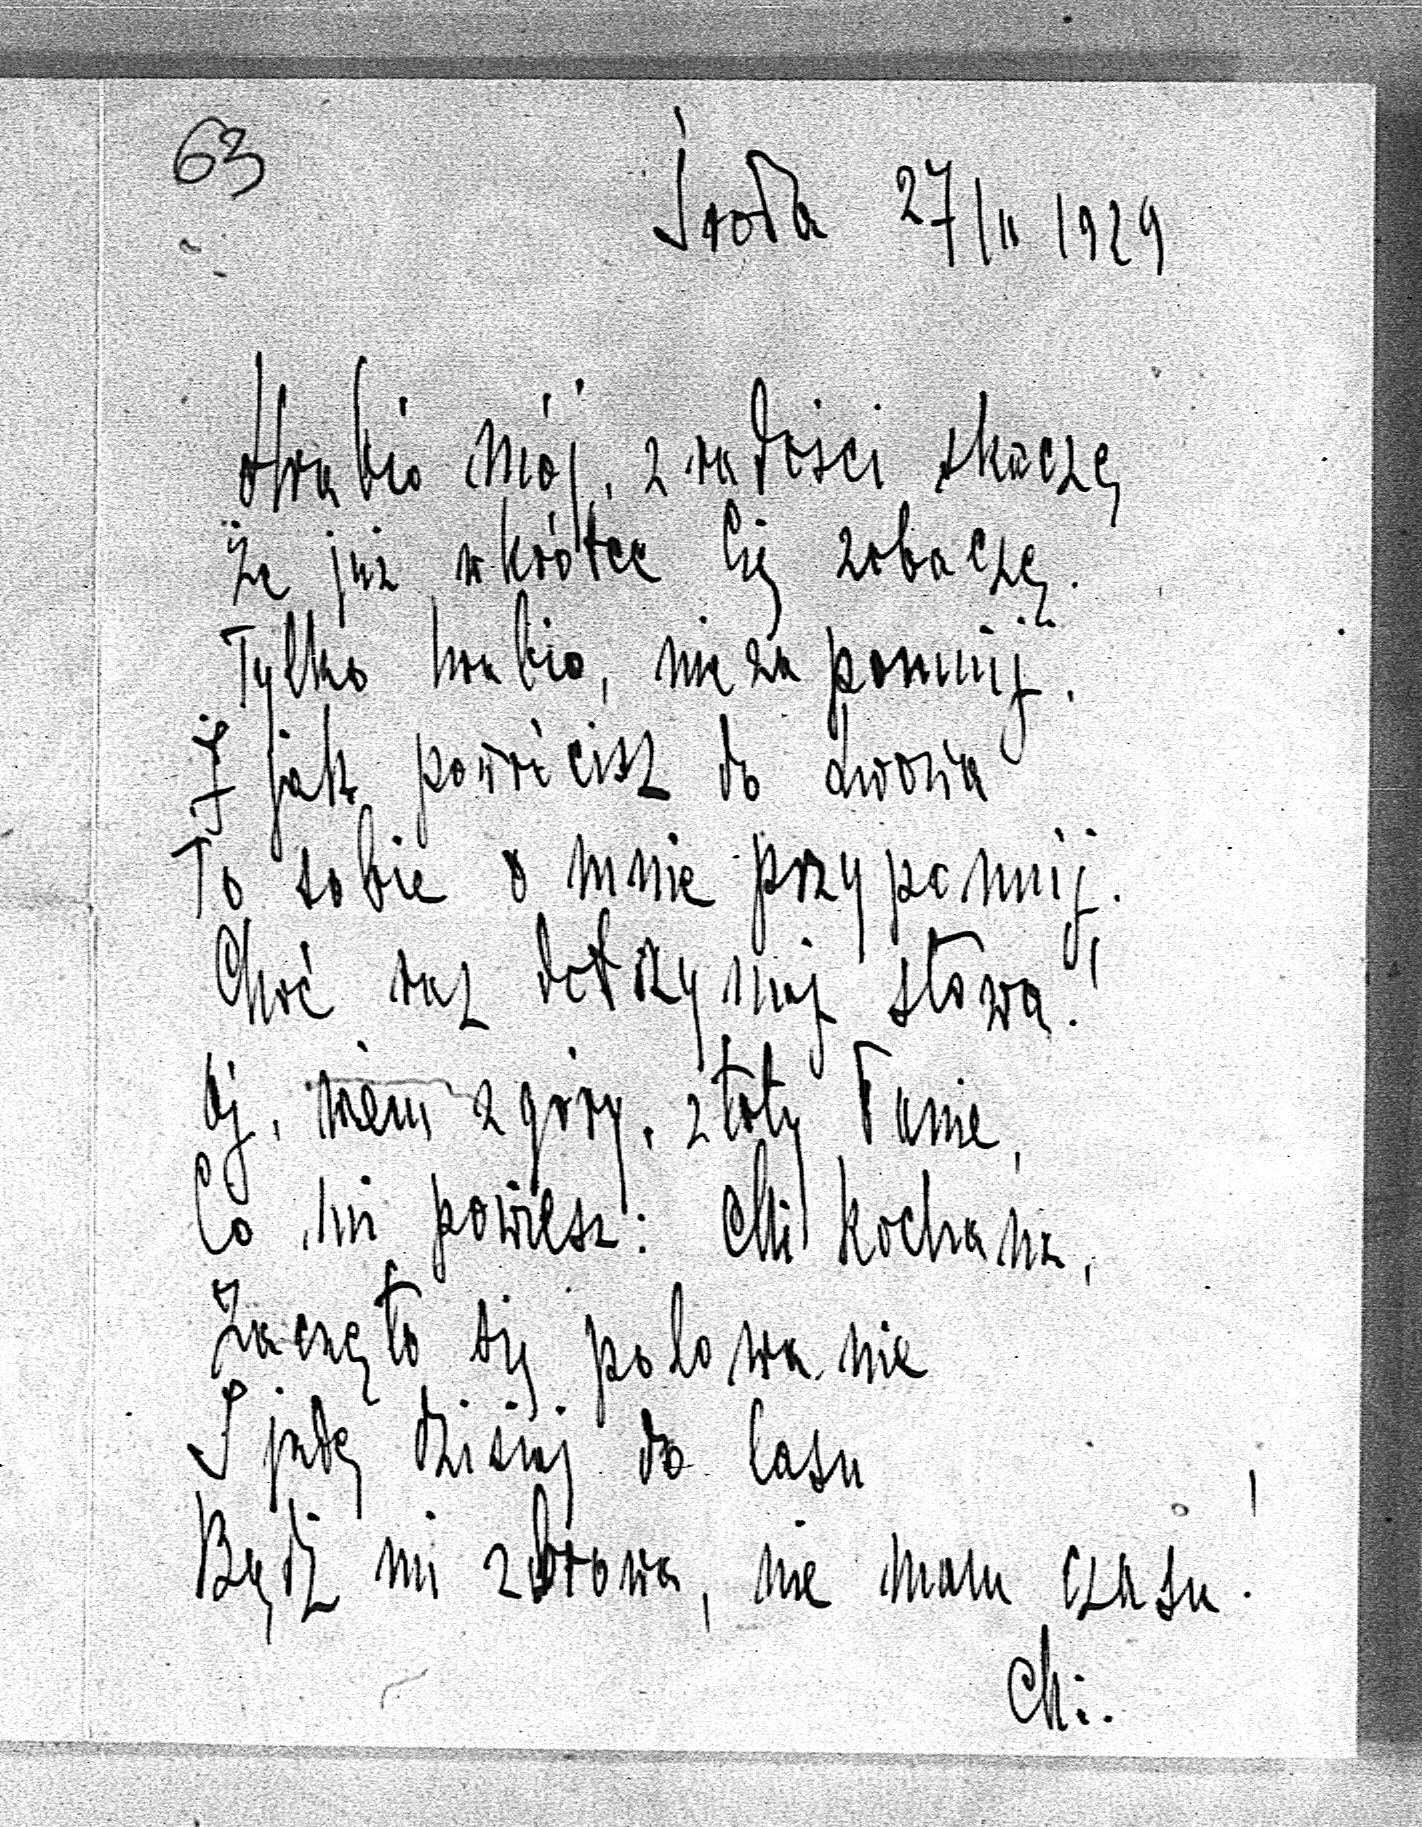 63
Środa 27/II 1929
Hrabio mój, z radości skaczę
Że już wkrótce Cię zobaczę.
Tylko hrabio, nie zapomnij,
I jak powrócisz do Lwowa
To sobie o mnie przypomnij,
Choć raz dotrzymaj słowa!
Oj, wiem z góry, złoty Panie,
Co mi powiesz: Chi kochana,
Zaczęło się polowanie
I jadę dzisiaj do lasu
Bądź mi zdrowa, nie mam czasu!
Chi.